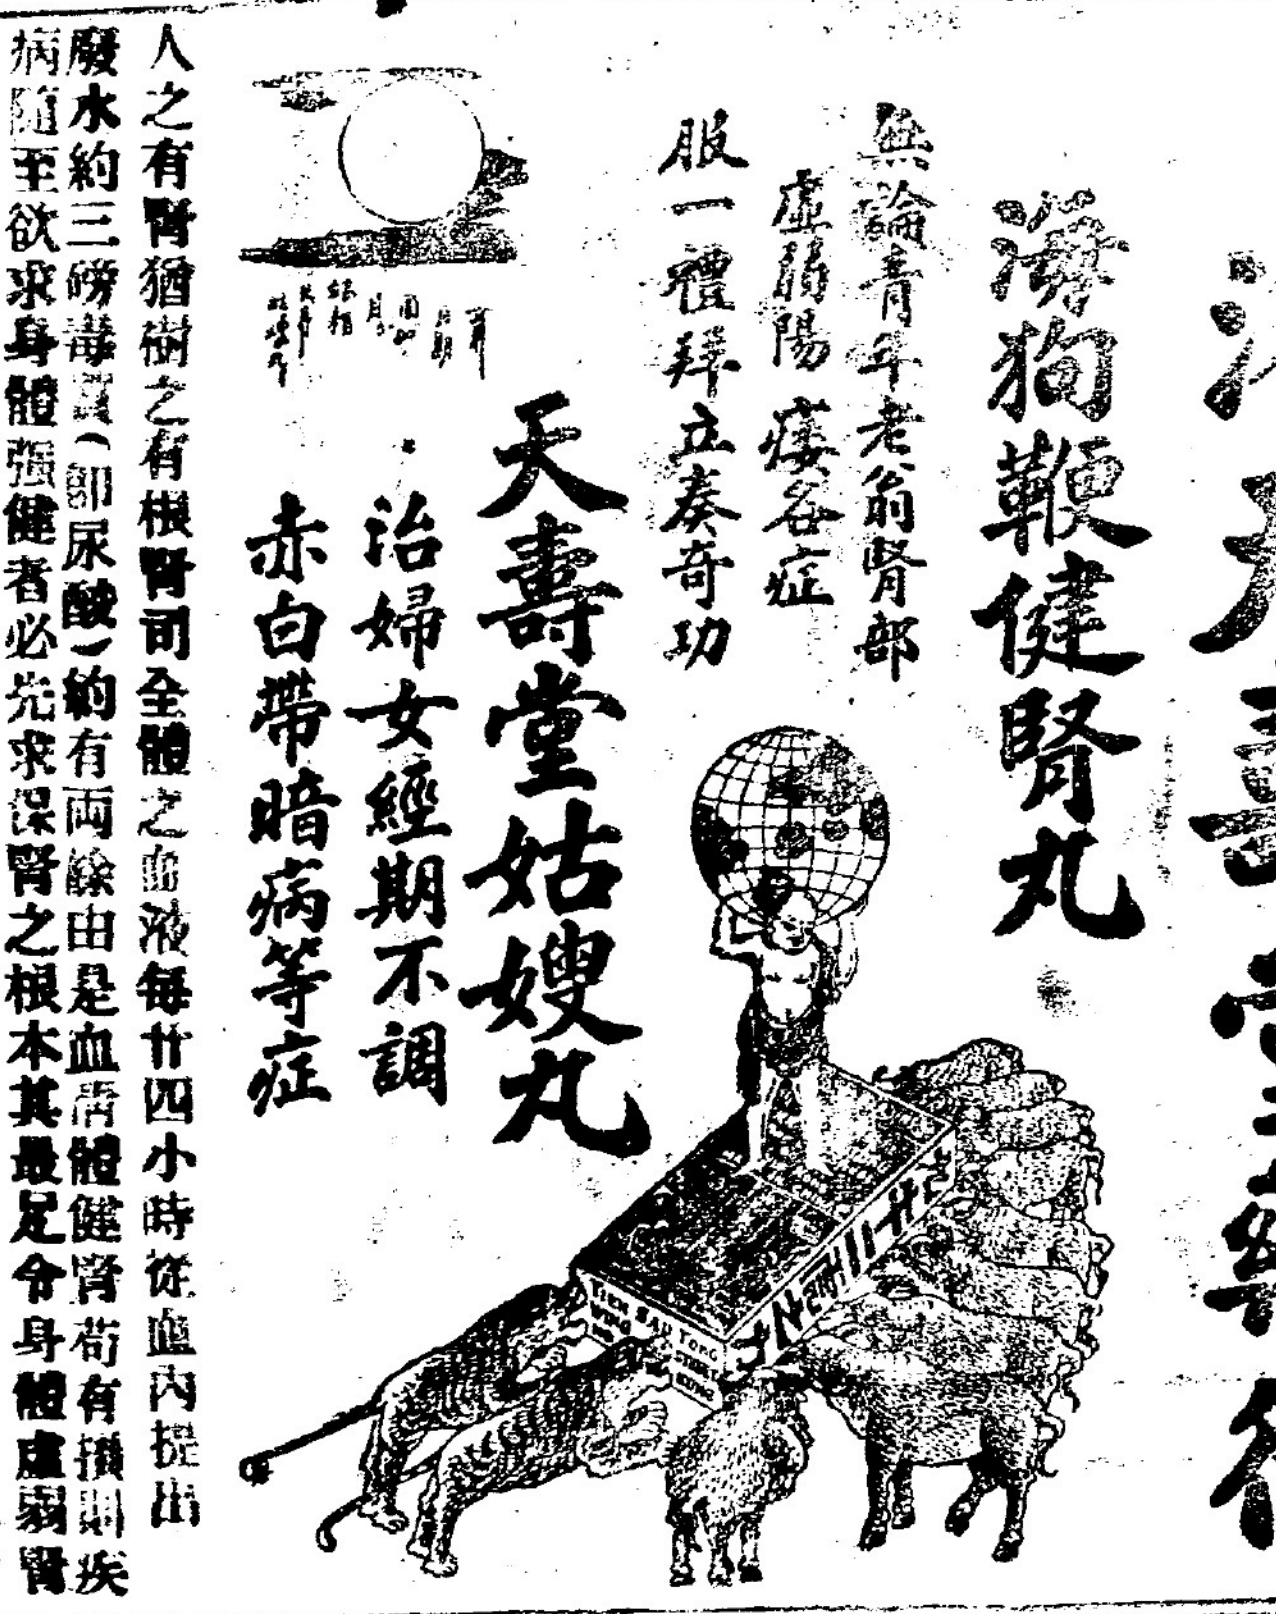 天壽堂
海狗鞭健腎丸
無論青年老翁腎部
虛弱陽痿各症
服一禮拜立奏奇功
天壽堂姑嫂丸
治婦女經期不調
赤白帶暗病等症
人之有腎猶樹之有根腎司全體之血液每廿四小時從血內提出
廢水約三磅毒質(卽尿酸)約有両餘由是血淸體健腎苟有損則疾
病隨至欲求身體强健者必先求保腎之根本其最足令身體虛弱腎
TIEN SAU TONG